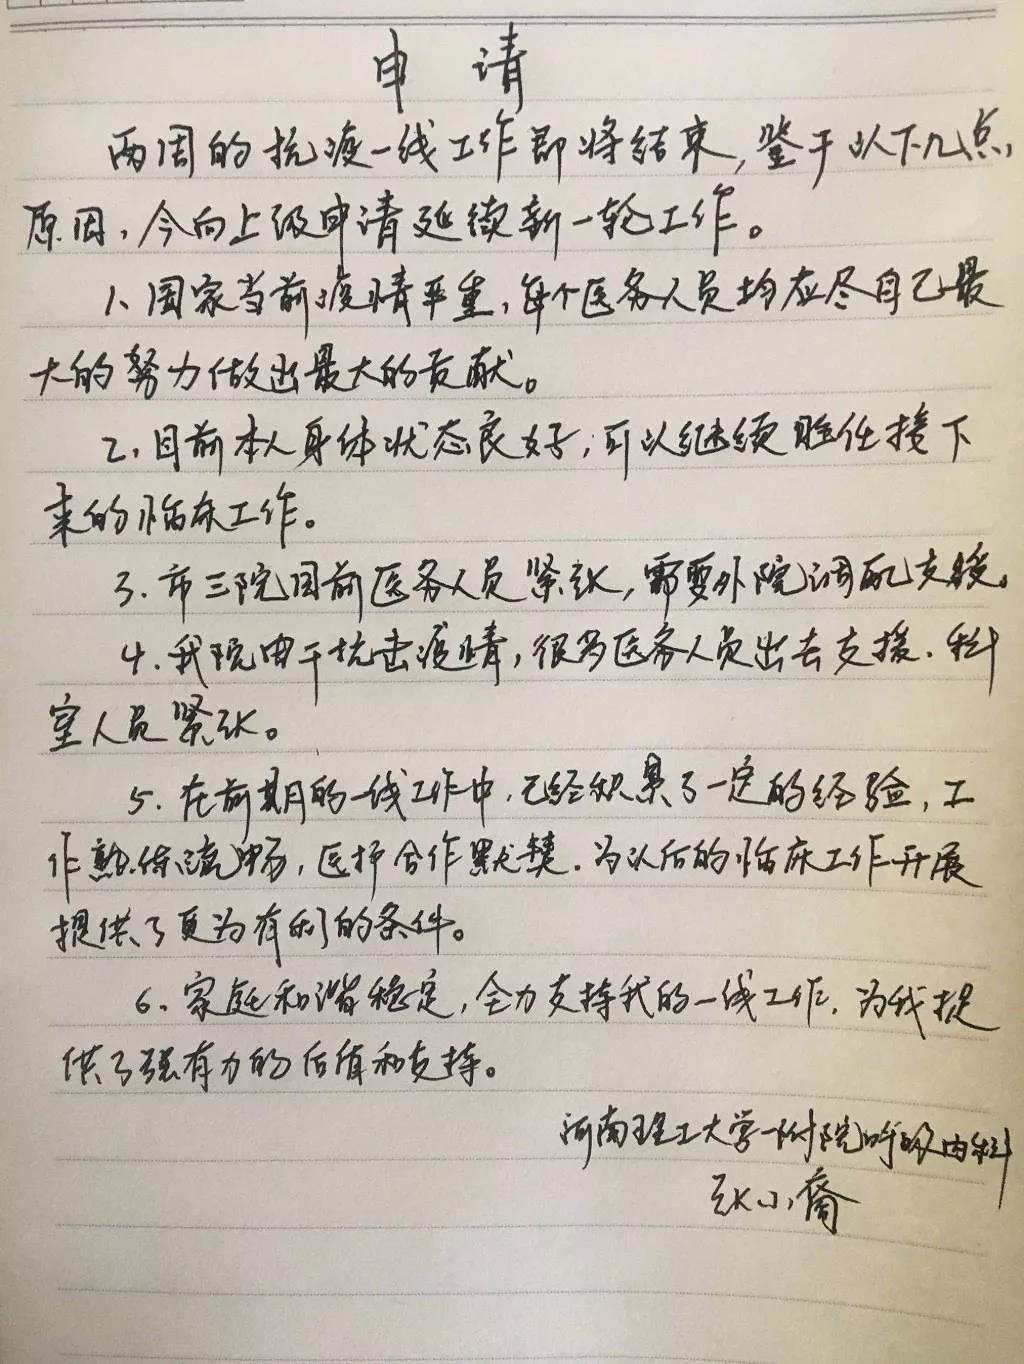 申 请
两周的抗疫一线工作即将结束,鉴于以下几点
原因,今向上级申请延续新一轮工作。
1、国家当前疫情严重,每个医务人员均应尽自己最
大的努力做出最大的贡献。
2、目前本人身体状态良好,可以继续胜任接下
来的临床工作。
3.市三院目前医务人员紧张,需要外院调配支援。
4.我院由于抗击疫情,很多医务人员出去支援.科
室人员紧张。
5.在前期的一线工作中,已经积累了一定的经验,工
作熟练流畅,医护合作默契.为以后的临床工作开展
提供了更为有利的条件。
6、家庭和谐稳定,全力支持我的一线工作.为我提
供了强有力的后盾和支持。
河南理工大学一附院呼吸内科
张小裔